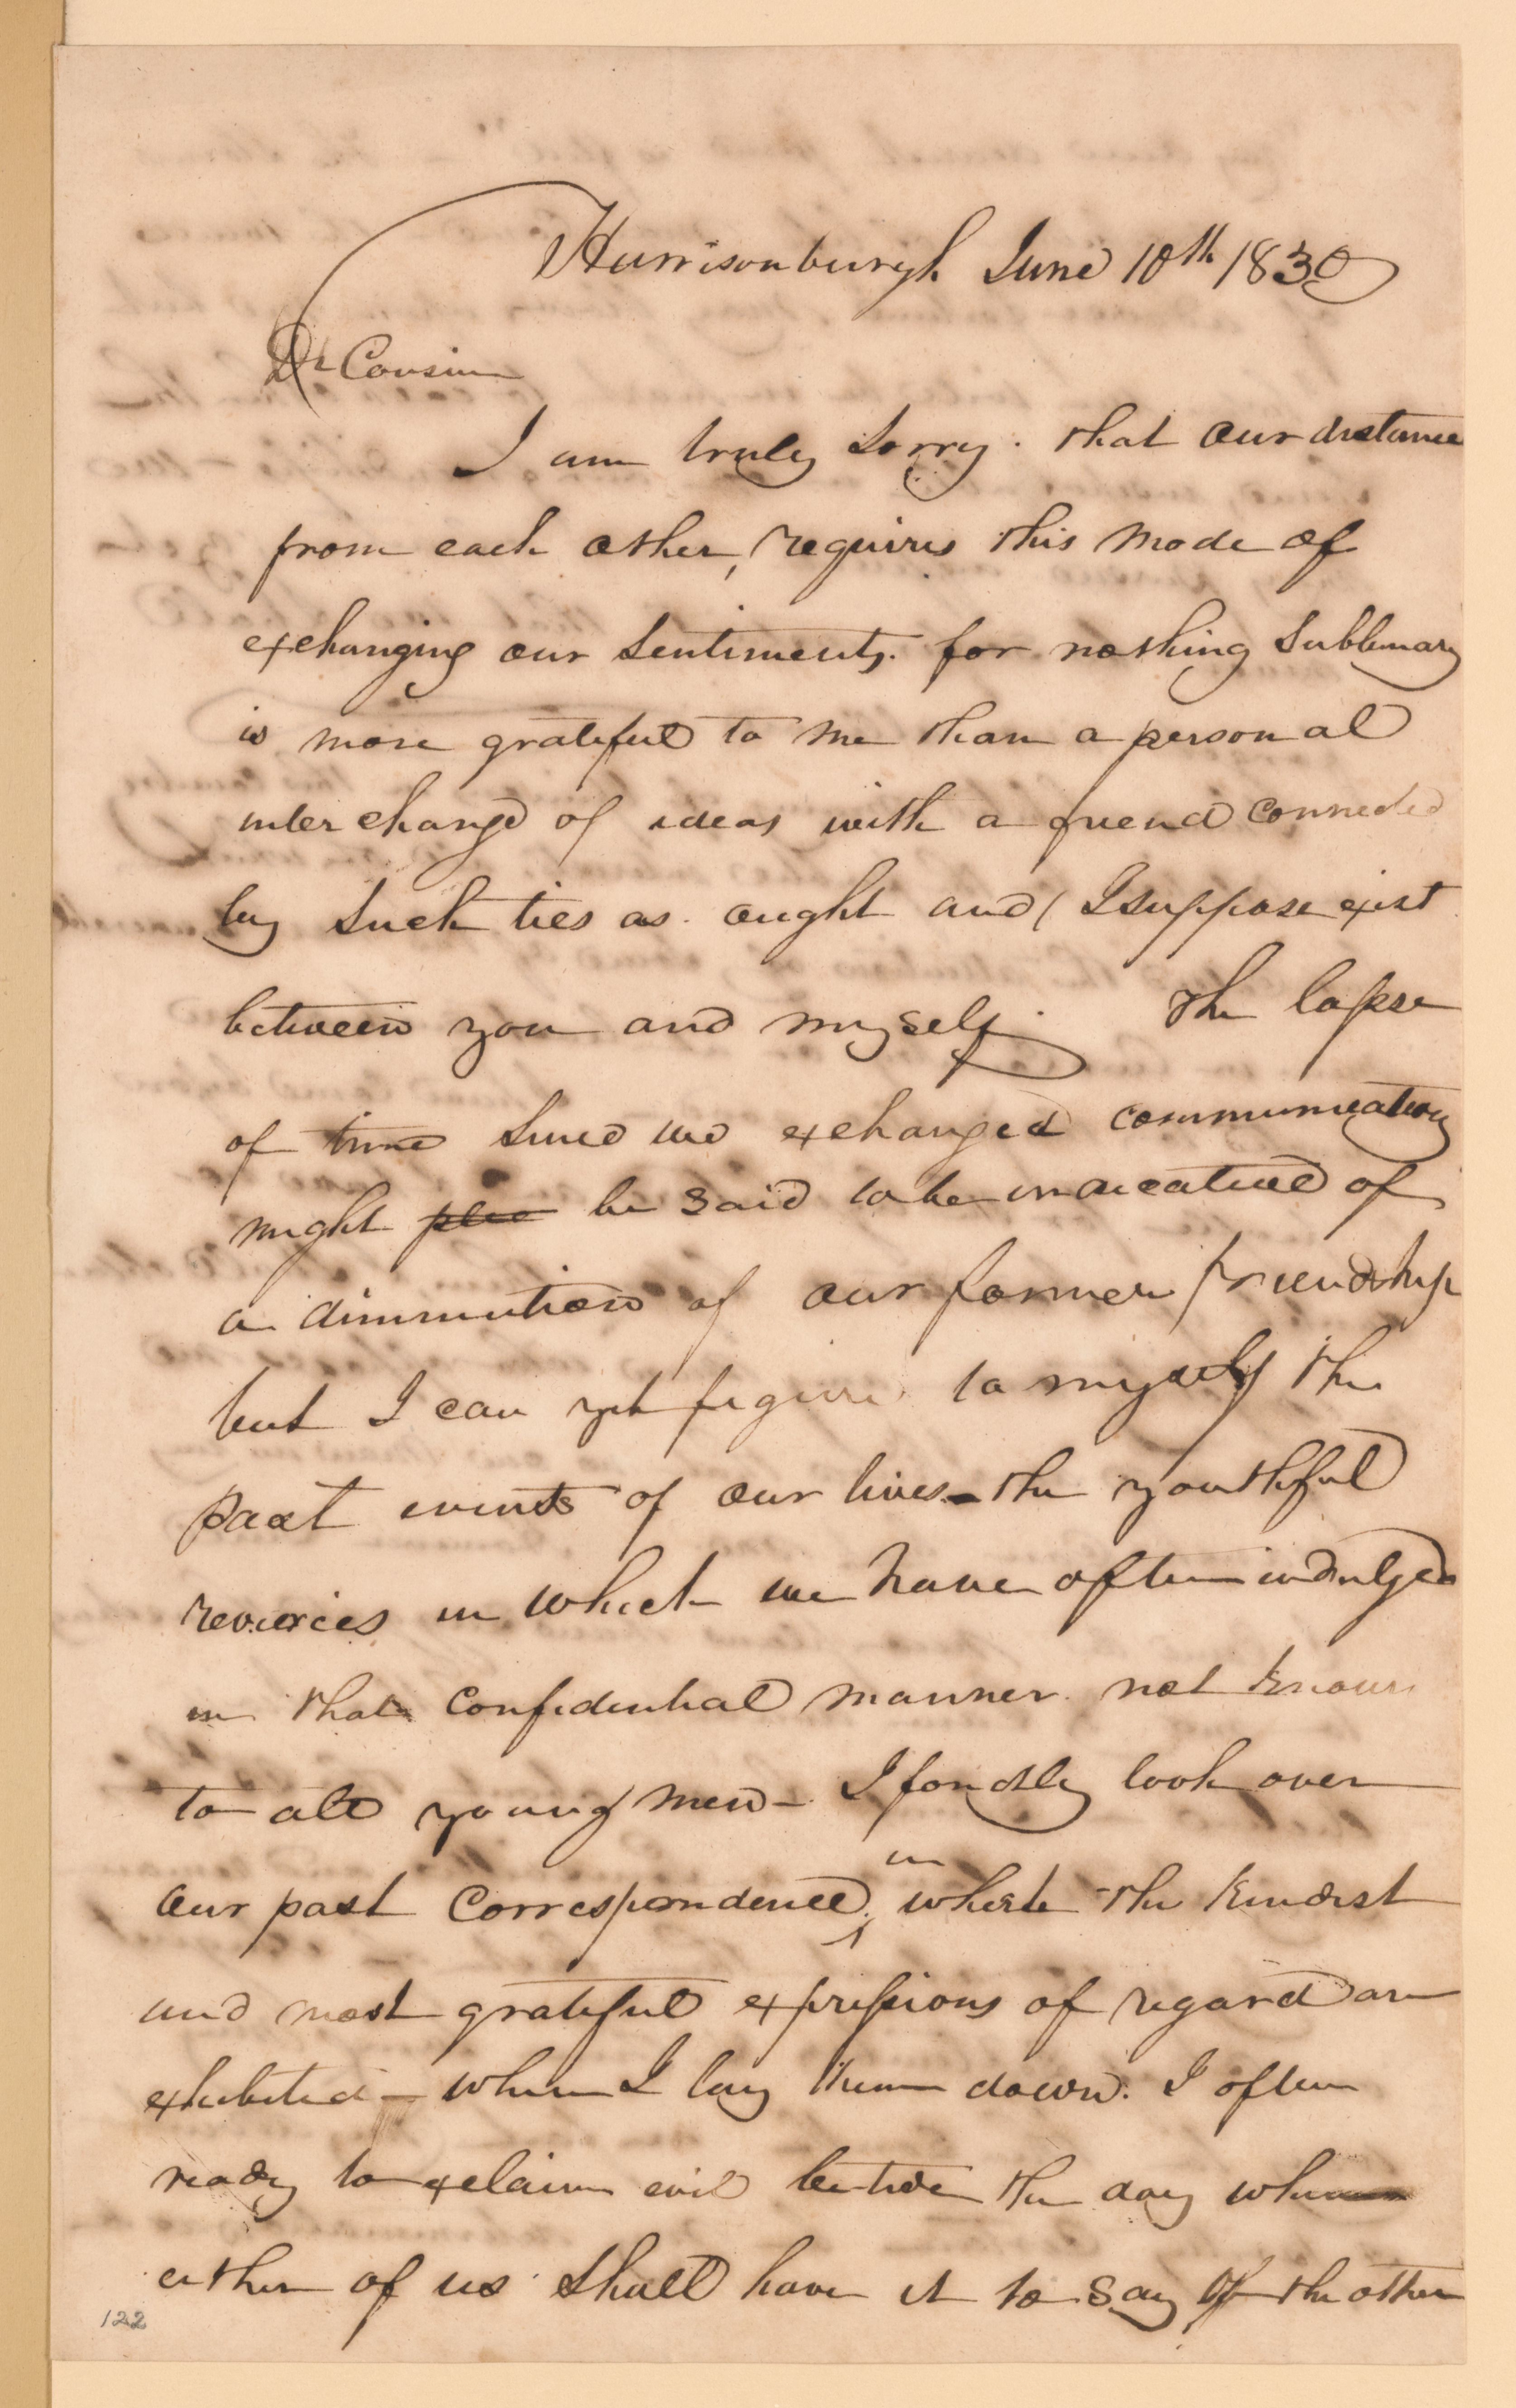 Harrisonburgh June 10th 1830
Dr Cousin
I am truly sorry. that our distance
from each other, requires this mode of
exchanging our sentiments. for nothing sublunary
is more grateful to me than a personal
interchange of ideas with a friend connected
by such ties as ought and (I suppose exist
between you and myself. The lapse
of time since we exchanged communications
might be said to be indicative of
a diminution of our former friendship
but I can yet figure to myself the
past events of our lives - the youthful
reveries in which we have often indulged
in that confidential manner not known
to all young men - I fondly look over
our past correspondence, in
which the kindest
and most grateful expressions of regard are
exhibited - when I lay them down. I often
ready to exclaim evil betide the day when
either of us shall have it to say of the other
122